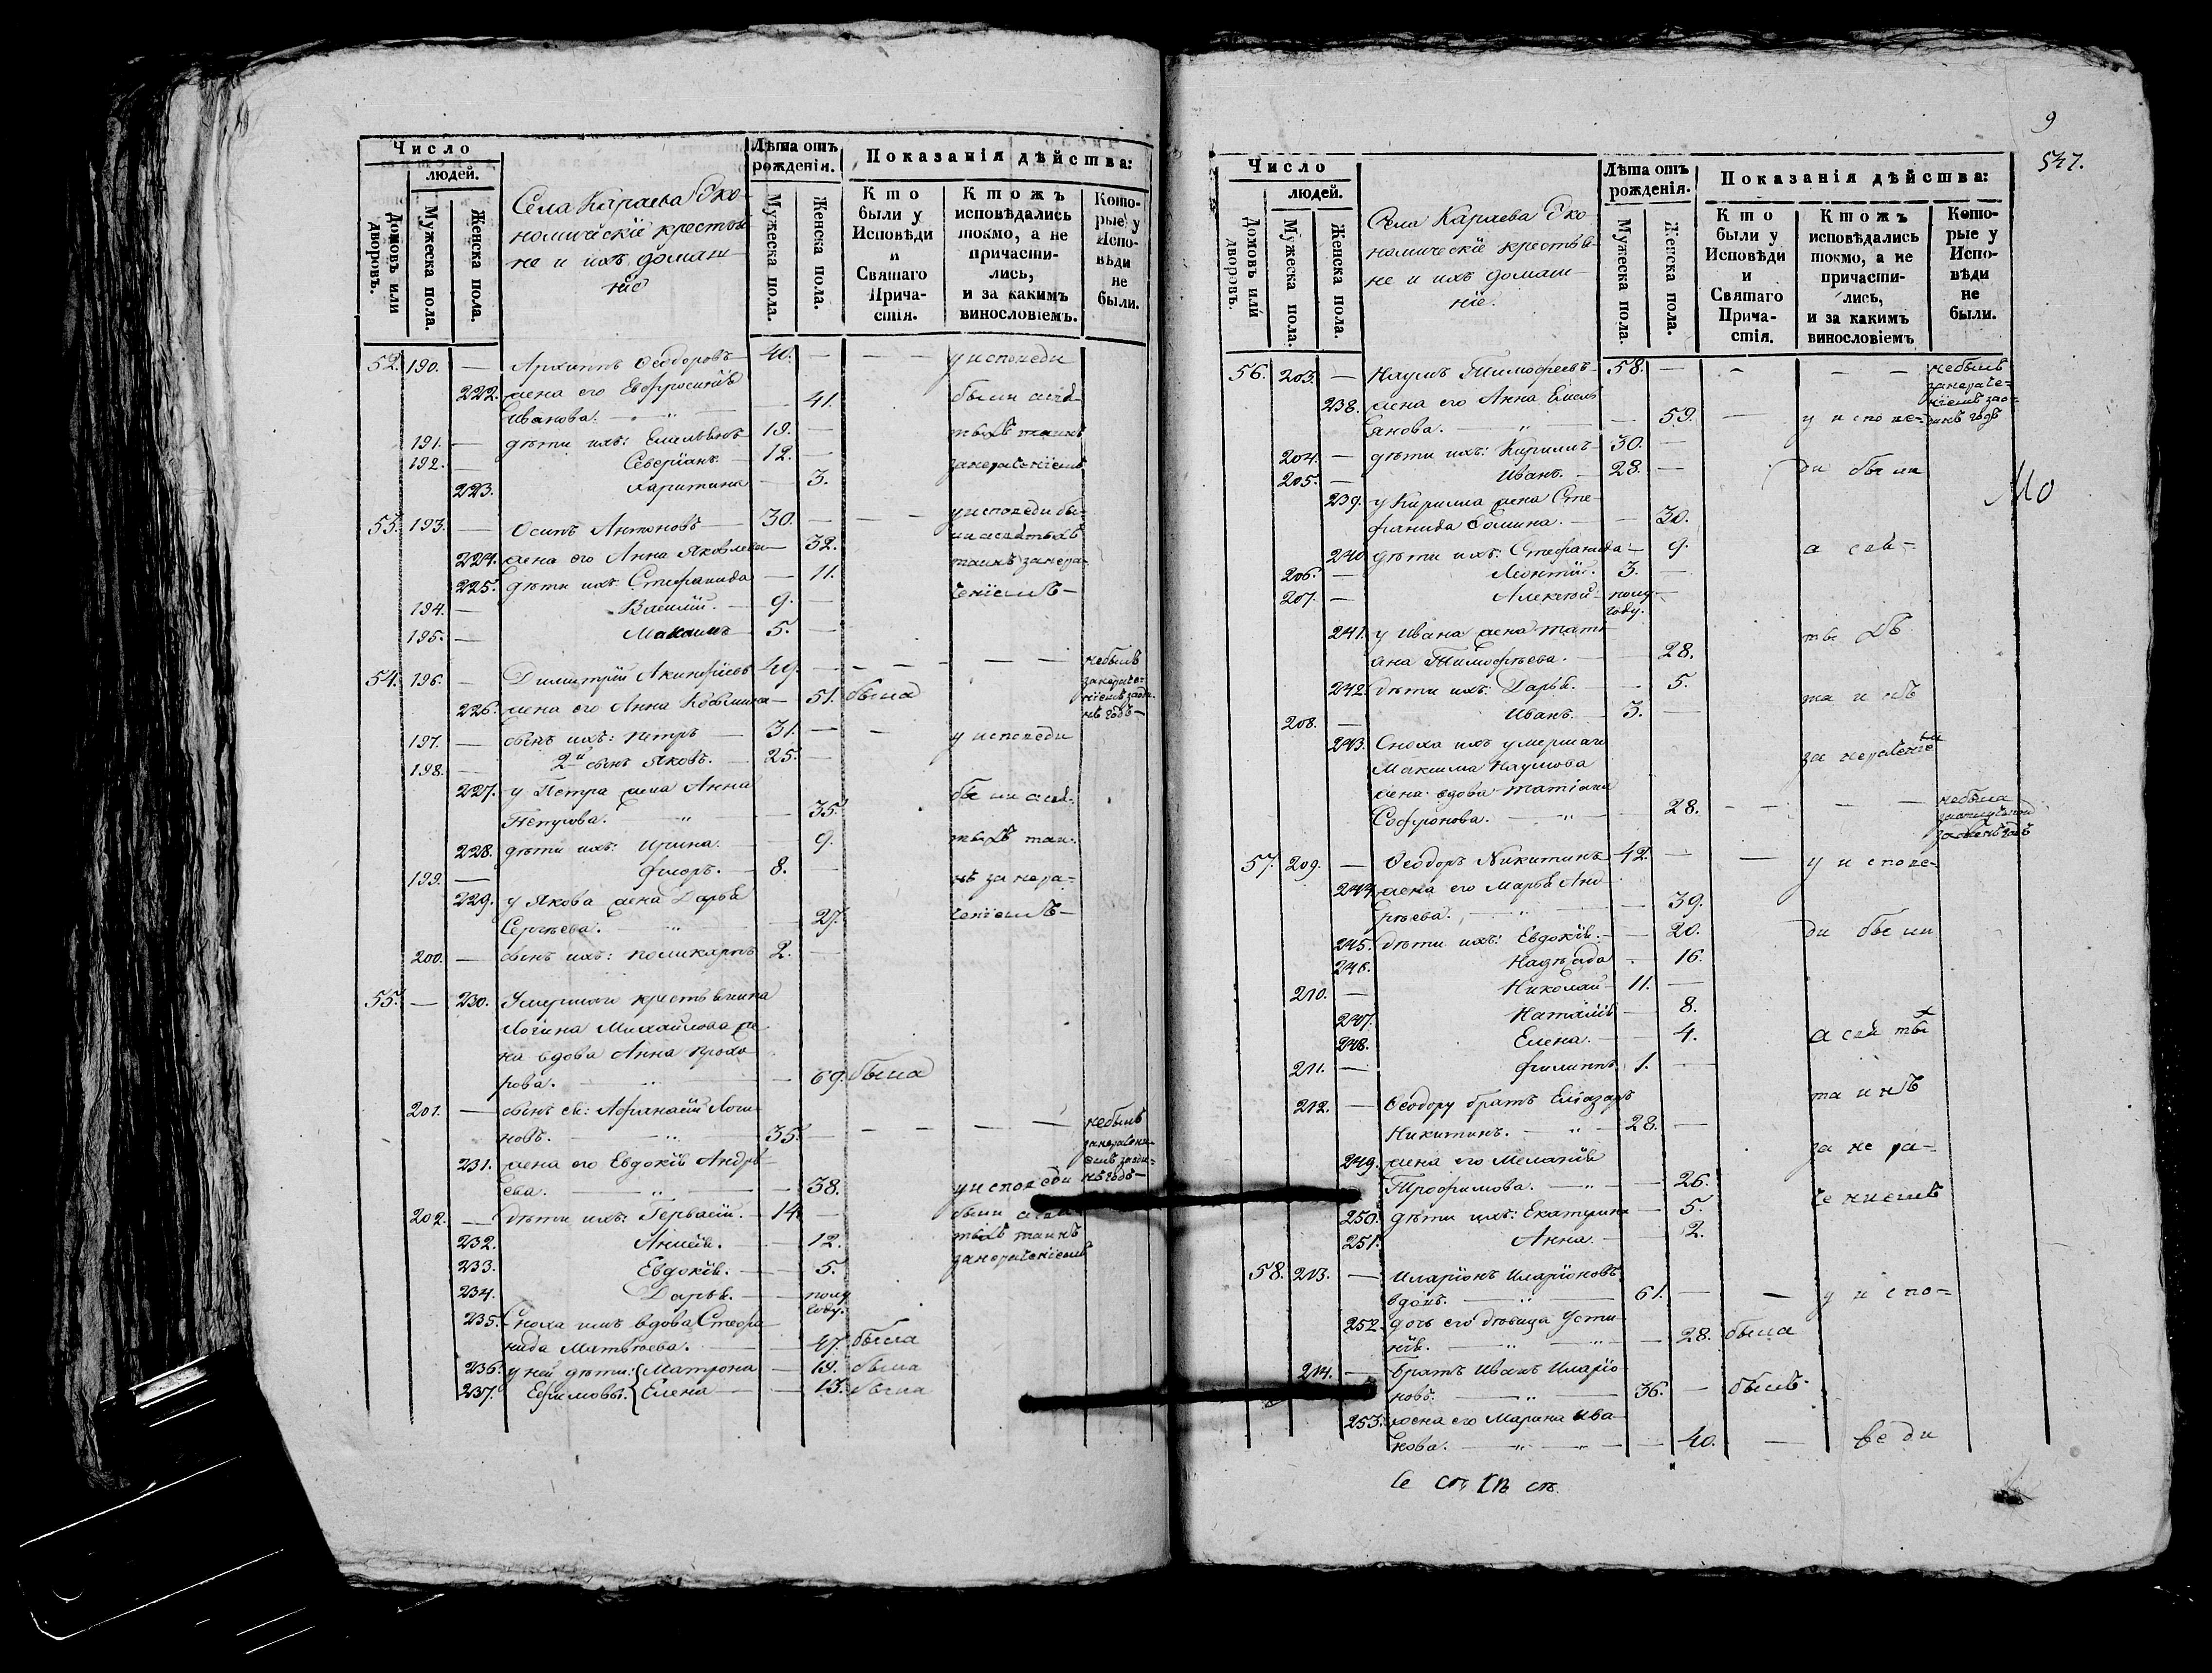 Число
людей.
Домовъ или дворовъ.
Мужеска пола.
Женска пола.
Села Караева Эко-
номическіе крестья-
не и ихъ домаш-
ніе
Лѣта отъ рожденія.
Мужеска пола.
Женска пола.
Показанія дѣйства:
Кто были у Исповѣди и Святаго Причастія.
Ктожъ исповѣдались токмо, а не причастились, и за какимъ винословіемъ.
Которые у Исповѣди не были.
52. 190. — Архиппъ Ѳеодоровъ 40. — — — у исповеди
222. жена его Евфросинія
Иванова. — 41. были а свя-
191. — дѣти ихъ: Емельянъ 19. — тыхъ таинъ
192. — Северіанъ. 12. —
223. Харитина — 3. за нераченіемъ
53. 193. — Осипъ Антоновъ 30. — — — у исповеди бы-
224. жена его Анна Яковлева — 32. ли а святыхъ
225. дѣти ихъ: Стефанида — 11. таинъ за нера-
194. — Василій. 9. — ченіемъ —
195. — Максимъ 5. —
54. 196. — Димитрій Акинфіевъ 49. — — — — небылъ
226. жена его Анна Козьмина — 51. была за нераче-
ніемъ за оди-
нъ годъ —
197. — сынъ ихъ: Петръ 31. — — у исповеди
198. — 2й сынъ Яковъ. 25. —
227. у Петра жена Анна
Петрова. — 35. были а свя-
228. дѣти ихъ: Ирина. — 9. тыхъ таи-
199. — Флоръ. 8. — нъ за нера-
229. у Якова жена Дарья
Сергѣева. — 27. ченіемъ —
200. — сынъ ихъ: Поликарпъ 2. —
55. — 230. Умершаго крестьянина
Логина Михайлова же
на вдова Анна Прохо
рова. — 69. была
201. — сынъ ея: Афанасій Логи
новъ. — 35. — — — — небылъ
за нерачені-
емъ за оди-
нъ годъ —
231. жена его Евдокія Андрѣ-
ева. — 38. у исповеди
202. — дѣти ихъ: Гервасій. 14. — были а свя
232. — 12. тыхъ таинъ
233. Евдокія. — 5. за нераченіемъ
234. Дарья. — полу
году.
235. Сноха имъ вдова Стефа
нида Матвѣева. — 47. была
236. у ней дѣти: Матрона — 19. была
237. Ефимовы: Елена — 13. была
9
547.
Число
людей.
Домовъ или дворовъ.
Мужеска пола.
Женска пола.
Села Караева Эко
номическіе крестья-
не и ихъ домаш-
ніе.
Лѣта отъ рожденія.
Мужеска пола
Женска пола.
Показанія дѣйства:
Кто были у Исповѣди и Святаго Причастія.
Ктожъ исповѣдались токмо, а не причастились, и за какимъ винословіемъ
Которые у Исповѣди не были.
56. 203. — Наумъ Тимофеевъ 58. — — — — небылъ
за нераче-
ніемъ за о-
динъ годъ
238. жена его Анна Емель
янова. — 59. — у испове-
204. — дѣти ихъ: Кирилъ 30. —
205. — Иванъ. 28. — ди были
239. у Кирила жена Сте-
фанида Ѳомина. — 30.
240. дѣти ихъ: Стефанида — 9. а свя-
206. — Леонтій. 3. —
207. — Алексѣй полу
году. —
241. у Ивана жена Тать
яна Тимофѣева. — 28. тыхъ
242. дѣти ихъ: Дарья. — 5. таинъ
208. — Иванъ. 3. —
243. Сноха ихъ умершаго
Максима Наумова
жена вдова Татіана за нерачені
Софронова. — 28. — — — небыла
57. 209. — Ѳеодоръ Никитинъ 42. — — у испове-
244. жена его Марья Анд
рѣева. — 39.
245. дѣти ихъ: Евдокія. — 20. ди были
246. Надѣжда — 16.
210. — Николай 11. —
247. Наталія — 8.
248. Елена. — 4. а святых
211. — Филиппъ 1. —
212. — Ѳеодору братъ Еліазаръ таинъ
Никитинъ. — 28. —
249. жена его Меланія за нера-
Трофимова. — 26.
250. дѣти ихъ: Екатерина — 5. ченіемъ
251. Анна. — 2.
58. 213. — Иларіонъ Иларіоновъ
вдовъ. — 61. — — у испо-
252. дочь его дѣвица Усти-
нія. — 28. была
214. — братъ Иванъ Иларіо
новъ. — 36. — былъ
253. жена его Марина Ива
нова. — 40. — веди